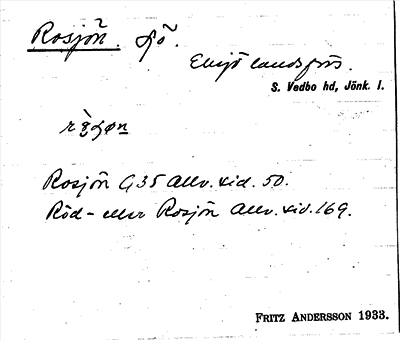 Rosjön. Sjö.
Eksjö landsförs.
S. Vedbo hd, Jönk. l.
Rosjön G 35 Allv. sid. 50.
Röd- eller Rosjön Allv. sid. 169.
FRITZ ANDERSSON 1933.